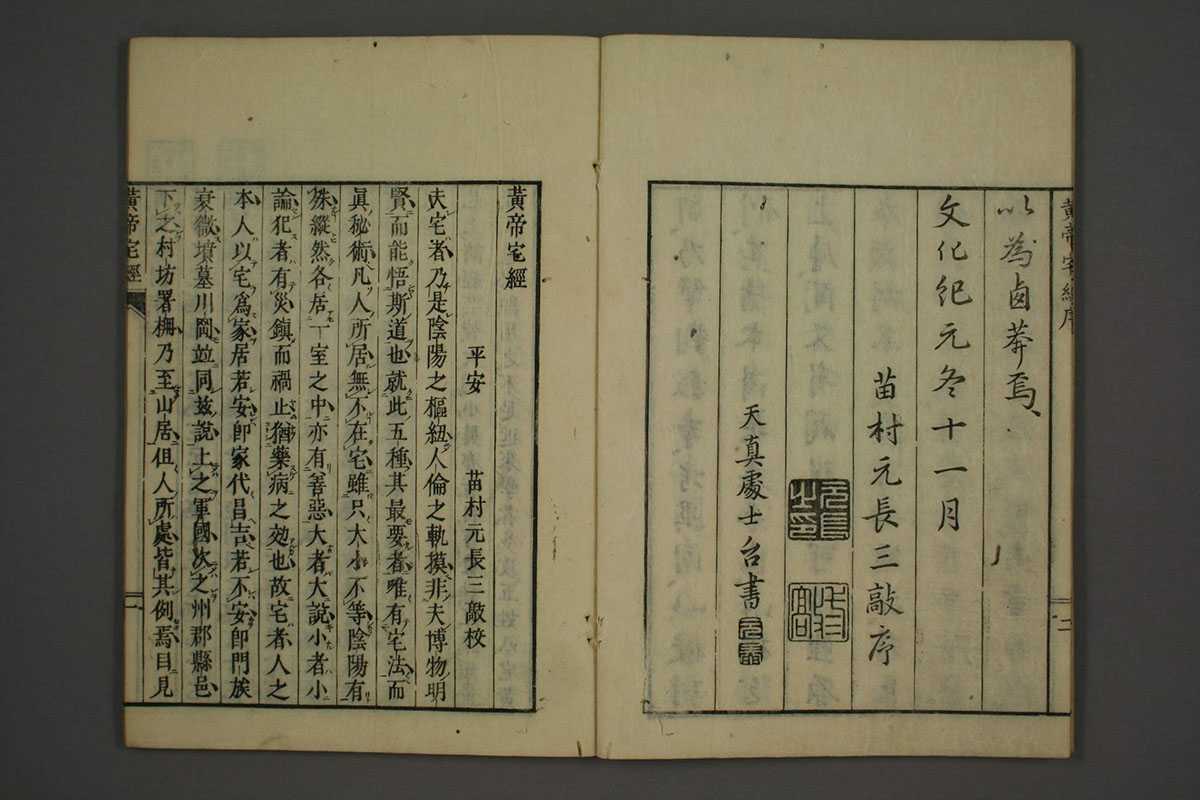 黃帝宅經序
以為鹵莽焉
文化紀元冬十一月
苗村元長三敲序
元長之印
天真處士台書
二
黃帝宅經
平安 苗村元長三敲校
夫宅者乃是陰陽之樞紐人倫之軌摸非夫博物明
賢而能悟斯道也就此五種其最要者唯有宅法而
眞秘術凡人所居無不在宅雖只大小不等陰陽有
殊縱然各居一室之中亦有善惡大者大說小者小
論犯者有災鎭而禍止猶藥病之効也故宅者人之
本人以宅爲家居若安卽家代昌吉若不安卽門族
衰微墳墓川岡竝同玆說上之軍國次之州郡縣邑
下之村坊署柵乃至山居但人所處皆其例焉目見
黃帝宅經
一